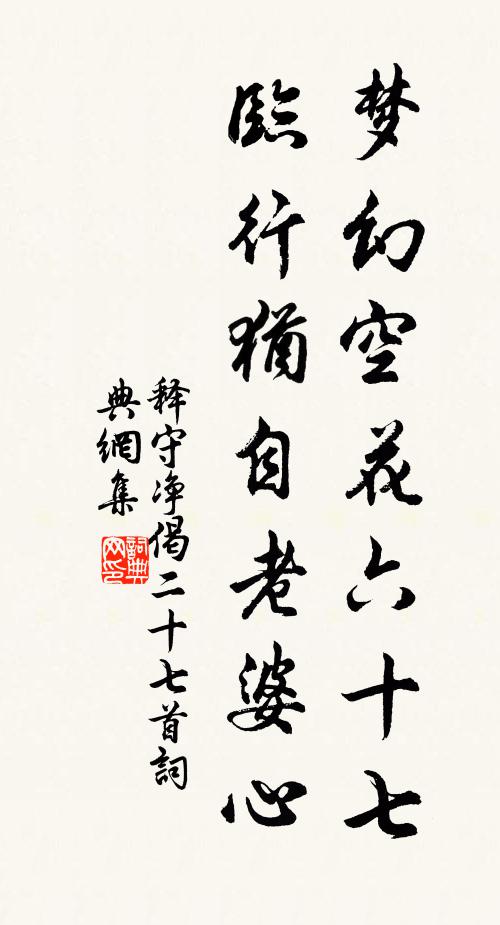 梦幻空花六十七
臨行猶自老婆心
释守净偈二十七首詞
典網集
詞典网印